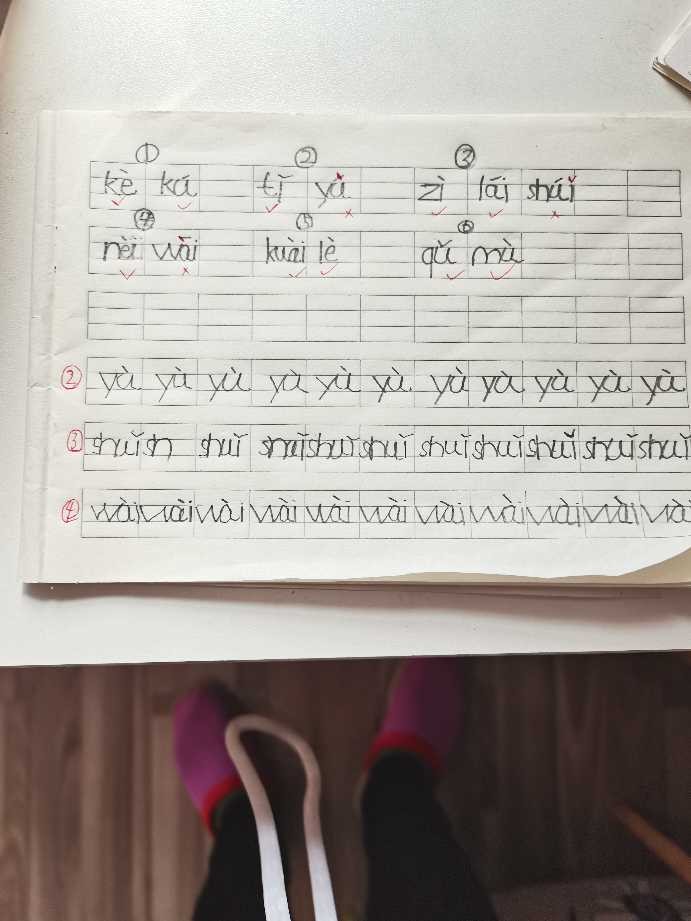 ① ② ③
kè ká tǐ yà zì lái shuǐ
④ ⑤ ⑥
nèi wài kuài lè qǔ mù
② yà yà yà yà yà yà yà yà yà yà yà
③ shuǐ sh shuǐ shuǐ shuǐ shuǐ shuǐ shuǐ shuǐ shuǐ shuǐ
④ wài wài wài wài wài wài wài wài wài wài wài